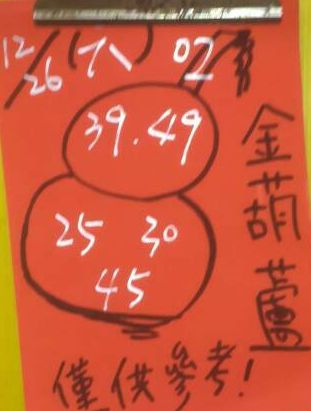 12/26(六) 02
39.49
25 30
45
金葫蘆
僅供參考!